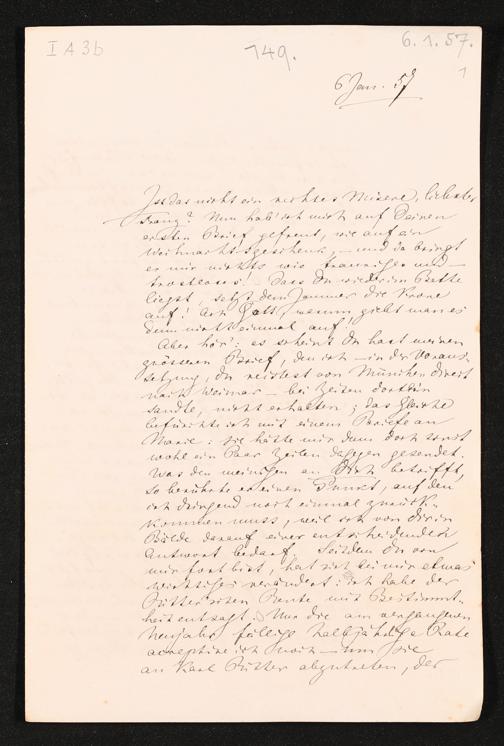 I A 3b
149.
6. 1. 57.
1
6 Jan. 57
Ist das nicht ein rechtes Misere, liebster
Franz? Nun hab' ich mich auf Deinen
ersten Brief gefreut, wie auf ein
Weihnachtsgeschenk, — und da bringt
er mir nichts wie trauriges und
trostloses! Dass Du wieder im Bette
liegst, setzt dem Jammer die Krone
auf! Ach Gott, warum giebt man es
denn nicht einmal auf!
Aber hör': es scheint Du hast meinen
grösseren Brief, den ich — in der Voraus-
setzung, Du reistest von München direct
nach Weimar — bei Zeiten dorthin
sandte, nicht erhalten; das Gleiche
befürchte ich mit einem Briefe an
Marie: sie hätte mir dann doch sonst
wohl ein Paar Zeilen dagegen gesendet.
Was den meinigen an Dich betrifft,
so berührte er einen Punkt, auf den
ich dringend noch einmal zurück-
kommen muss, weil ich von Dir in
Bälde darauf einer entscheidenden
Antwort bedarf. Seitdem Du von
mir fort bist, hat sich bei mir etwas
wichtiges verändert: ich habe der
Ritter'schen Rente mit Bestimmt-
heit entsagt. Nur die am vergangenen
Neujahr fällige halbjährige Rate
acceptire ich noch — um sie
an Karl Ritter abzutreten, der